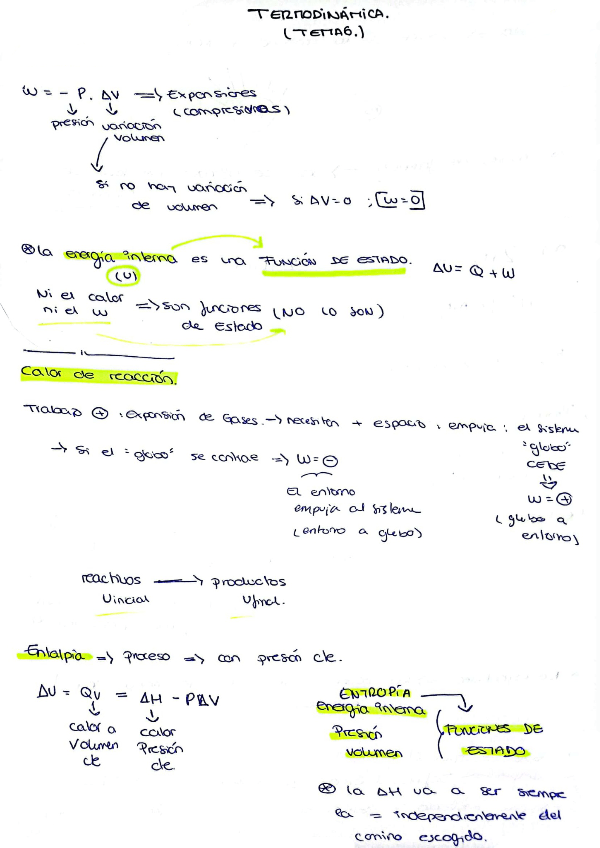 TERMODINÁMICA.
(TEMA 6.)
W = - P. ΔV => Expansiones
(compresiones)
presión variación
volumen
si no hay variación
de volumen => Si ΔV=0 ; W=0
⊛ La energía interna es una FUNCIÓN DE ESTADO. ΔU = Q + W
(U)
Ni el calor
ni el W => son funciones (NO LO SON)
de Estado
Calor de reacción.
Trabajo ⊕ : expansión de Gases. → necesitan + espacio, empuja : el sistema
"globo"
CEDE
→ Si el "globo" se contrae => W = ⊖
W = ⊕
(globo a
entorno)
El entorno
empuja al sistema
(entorno a globo)
reactivos → productos
Uinicial Ufinal.
Entalpia => proceso => con presión cte.
ΔU = Qv = ΔH - PΔV
calor a
volumen
cte
calor
Presión
cte.
ENTROPÍA
energía interna
Presión
volumen
FUNCIONES DE
ESTADO
⊛ La ΔH va a ser siempre
la = independientemente del
camino escogido.